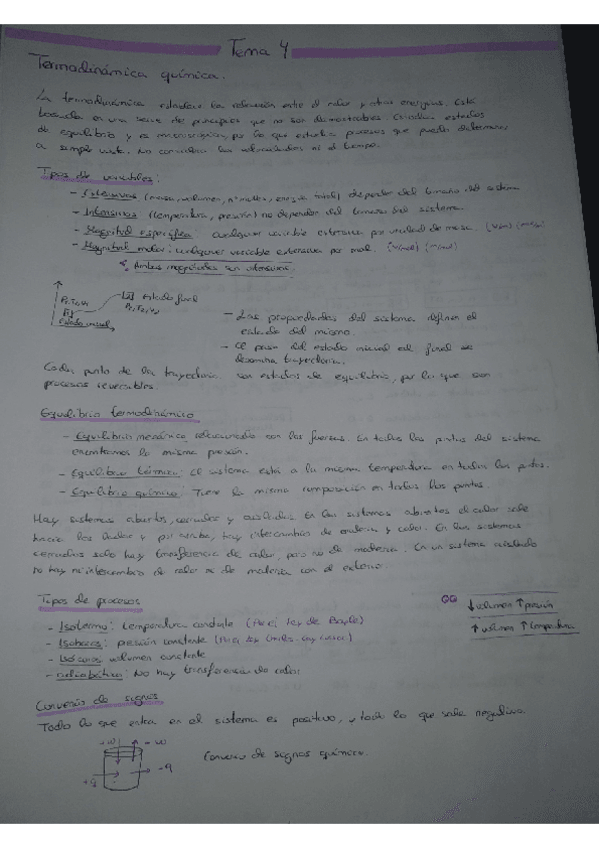 Tema 4
Termodinámica química.
La termodinámica establece la relación entre el calor y otras energías. Está
basada en una serie de principios que no son demostrables. Estudia estados
de equilibrio y es macroscópica, por lo que estudia procesos que pueden
a simple vista, no considera las velocidades ni el tiempo.
Tipos de variables:
- Extensivas (masa, volumen, nº moles, energía total) dependen del tamaño del sistema
- Intensivas (temperatura, presión) no dependen del tamaño del sistema.
- Magnitud específica: cualquier variable extensiva por unidad de masa.
- Magnitud molar: cualquier variable extensiva por mol.
Ambas magnitudes son intensivas
Estado final
P₂, T₂, V₂
P₁, T₁, V₁
Estado inicial
- Las propiedades del sistema definen el
estado del mismo.
- El paso del estado inicial al final se
denomina trayectoria.
Cada punto de la trayectoria son estados de equilibrio, por lo que son
procesos reversibles.
Equilibrio termodinámico
- Equilibrio mecánico relacionado con las fuerzas. En todos los puntos del sistema
encontramos la misma presión.
- Equilibrio térmico: el sistema está a la misma temperatura en todos los puntos.
- Equilibrio químico: Tiene la misma composición en todos los puntos.
Hay sistemas abiertos, cerrados y aislados. En los sistemas abiertos el calor sale
hacia los lados y por arriba, hay intercambios de materia y calor. En los sistemas
cerrados solo hay transferencia de calor, pero no de materia. En un sistema aislado
no hay ni intercambio de calor ni de materia con el exterior.
Tipos de procesos
- Isotermo: temperatura constante (ley de Boyle)
- Isobaros: presión constante
- Isócoros: volumen constante
- adiabático: No hay transferencia de calor
↓ volumen ↑ presión
↑ volumen ↑ temperatura
Convenio de signos
Todo lo que entra en el sistema es positivo, y todo lo que sale negativo
+w - w
-q
+q
Convenio de signos químico.